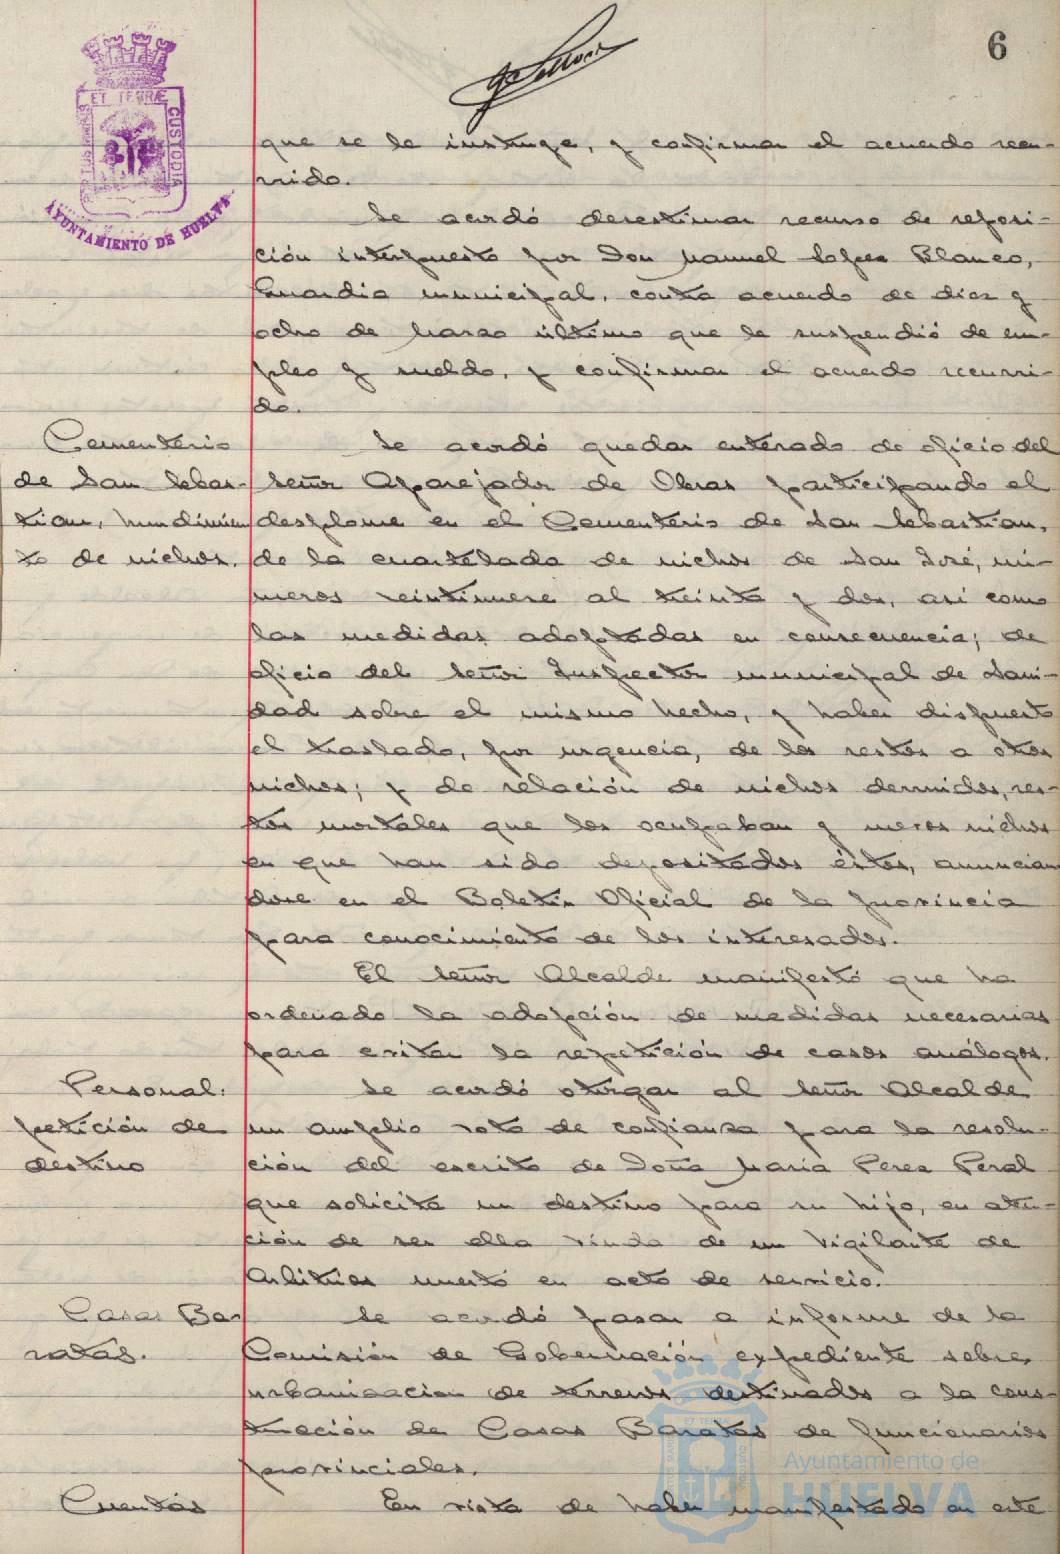 6
PORTUS MARIS ET TERRÆ CUSTODIA
AYUNTAMIENTO DE HUELVA
que se le instruye, y confirmar el acuerdo recu-
rrido.
Se acordó desestimar recurso de reposi-
ción interpuesto por Don Manuel López Blanco,
Guardia municipal, contra acuerdo de diez y
ocho de Marzo último que le suspendió de em-
pleo y sueldo, y confirmar el acuerdo recurri-
do.
Cementerio
de San Sebas-
tian, hundimien
to de nichos.
Se acordó quedar enterado de oficio del
Señor Aparejador de Obras participando el
desplome en el Cementerio de San Sebastian,
de la cuartelada de nichos de San José, nú-
meros veintinueve al treinta y dos, así como
las medidas adoptadas en consecuencia; de
oficio del Señor Inspector municipal de Sani-
dad sobre el mismo hecho, y haber dispuesto
el traslado, por urgencia, de los restos a otros
nichos; y de relación de nichos derruidos, res-
tos mortales que los ocupaban y nuevos nichos
en que han sido depositados éstos, anuncian
dose en el Boletín Oficial de la provincia
para conocimiento de los interesados.
El Señor Alcalde manifestó que ha
ordenado la adopción de medidas necesarias
para evitar la repetición de casos análogos.
Personal:
petición de
destino
Se acordó otorgar al Señor Alcalde
un amplio voto de confianza para la resolu-
ción del escrito de Doña María Perez Peral
que solicita un destino para su hijo, en aten-
ción de ser ella viuda de un Vigilante de
Arbitrios muerto en acto de servicio.
Casas Ba-
ratas.
Se acordó pasar a informe de la
Comisión de Gobernación expediente sobre
urbanizacion de terrenos destinados a la cons-
trucción de Casas Baratas de funcionarios
provinciales.
Cuentas
En vista de haber manifestado en este
Ayuntamiento de
HUELVA